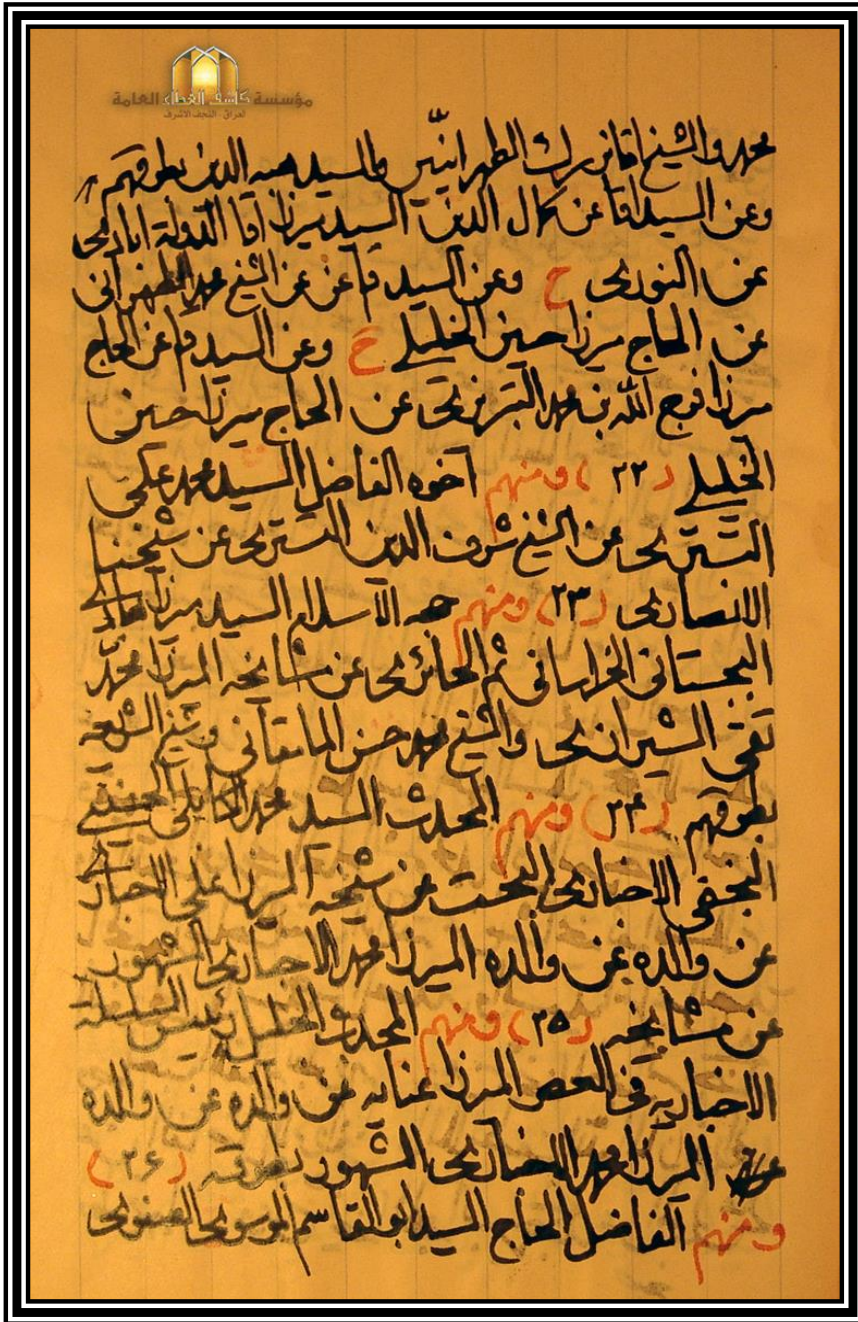 مؤسسة كاشف الغطاء العامة
العراق - النجف الاشرف
محمد والشيخ اقا بزرك الطهرانيين والسيد هبه الدين بطرقهم
وعن السيد اقا عن كمال الدين السيد ميرزا اقا الدولة ابادى
عن النورى ح وعن السيد عن الشيخ محمد الطهرانى
عن الحاج مرزا حسين الخليلى ح وعن السيد عن الحاج
مرزا فرج الله بن محمد التبريزى عن الحاج ميرزا حسين
الخليلى (۲۲) ومنهم اخوه الفاضل السيد محمد على
التسترى عن الشيخ شرف الدين التسترى عن شيخنا
الانصارى (۲۳) ومنهم حجه الاسلام السيد ميرزا هادى
البجستانى الخراسانى ثم الحائرى عن مشايخه المرزا محمد
تقى الشيرازى والشيخ محمد حسن المامقانى وشيخ الشريعه
بطرقهم (۲۴) ومنهم المحدث السيد محمد الحسينى
النجفى الاخبارى البحت عن شيخه المرزا على الاخبارى
عن والده عن والده الميرزا محمد الاخبارى الشهور
عن مشايخه (۲۵) ومنهم المحدث الجليل رئيس السلسلة
الاخباريه فى العصر المرزا عن والده عن والده
المرزا محمد الاخبارى المشهور بطرقه (۲۶)
ومنهم الفاضل الحاج السيد ابو القاسم الموسوى الصفوى